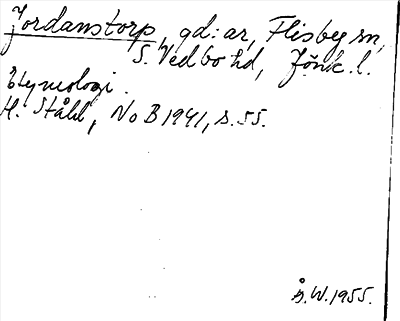 Jordanstorp, gd:ar, Flisby sn,
S. Vedbo hd, Jönk. l.
Etymologi.
H. Ståhl, NoB 1941, s. 55.
Å.W. 1955.